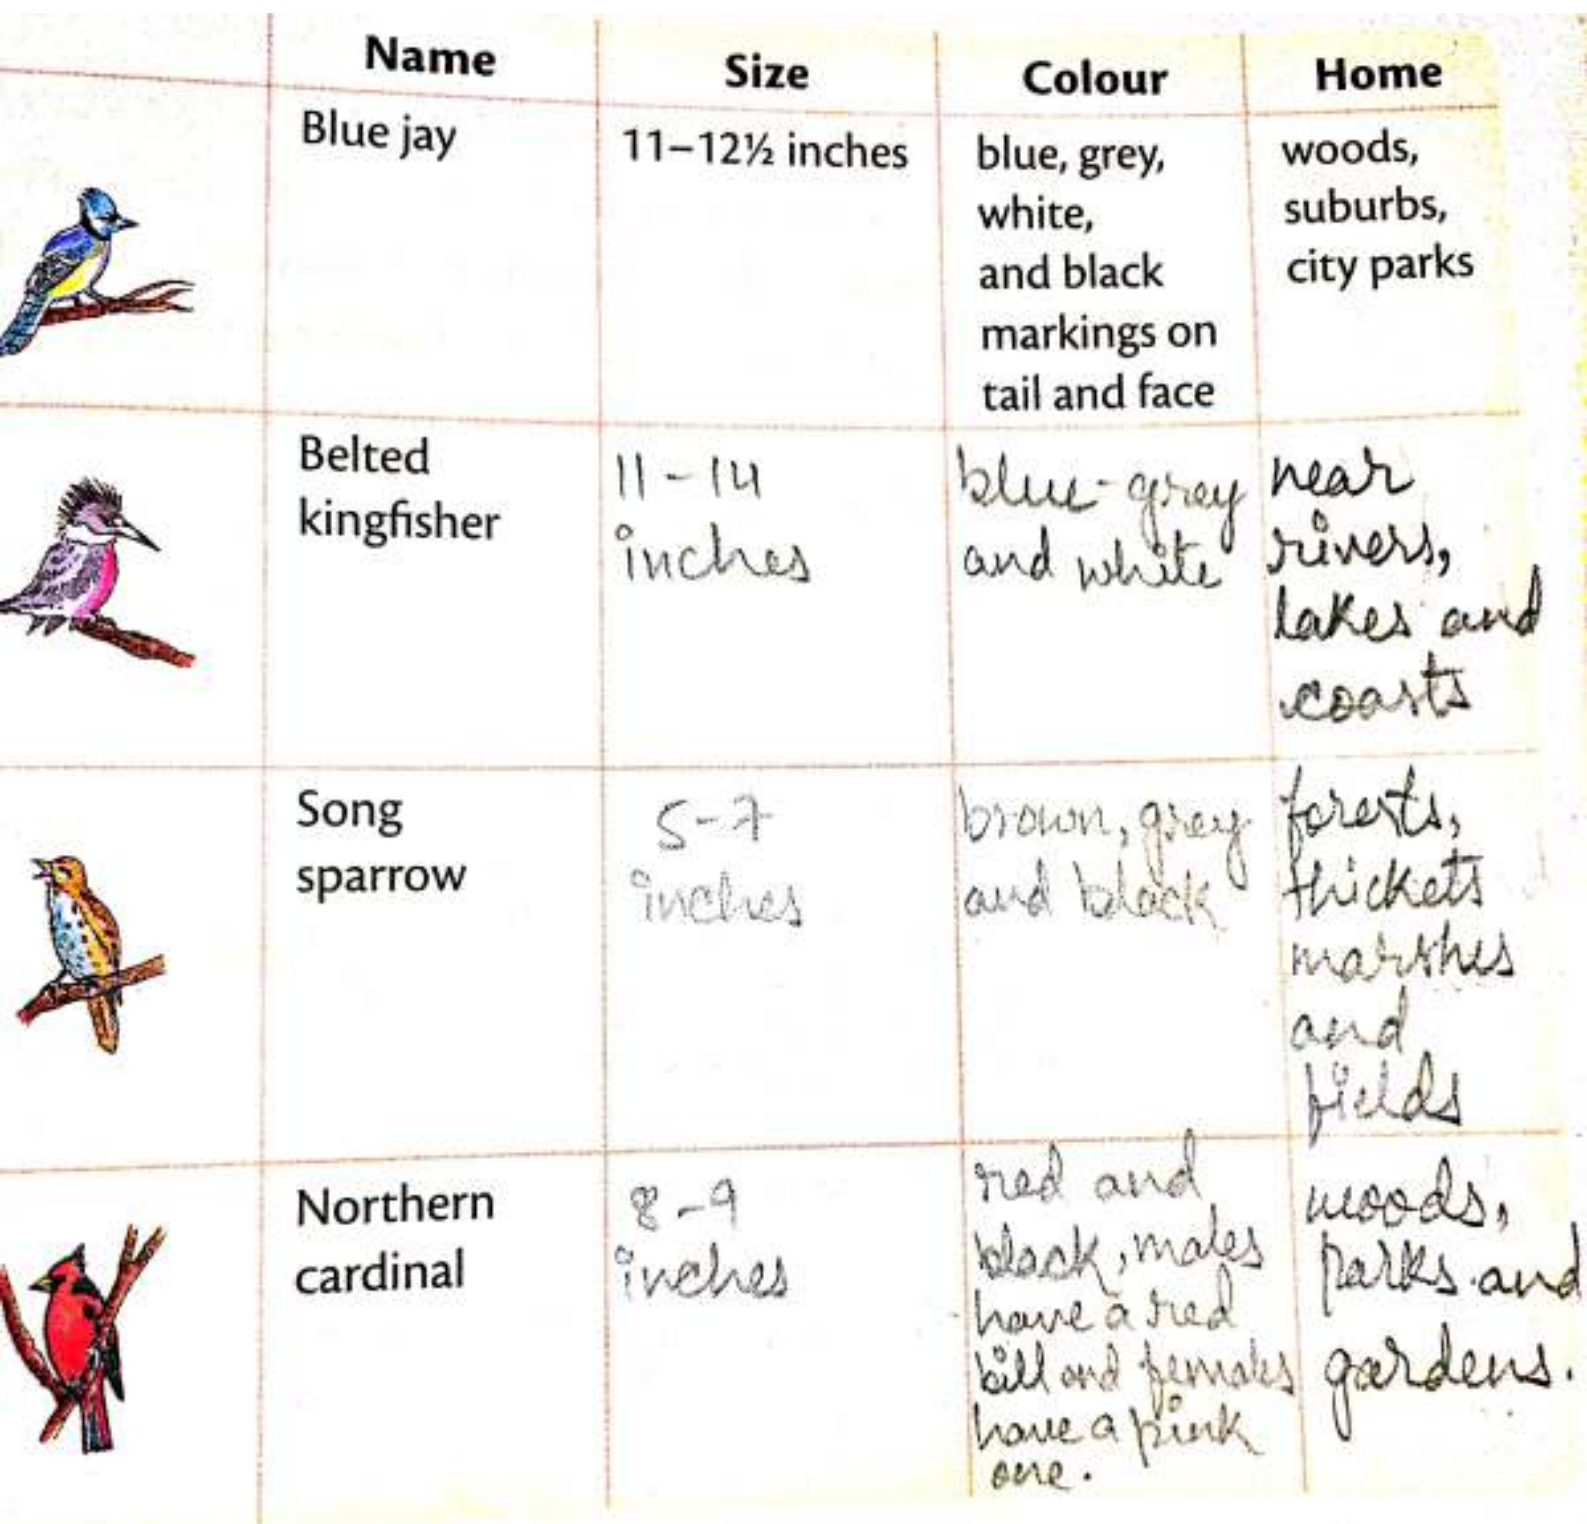 Name
Size
Colour
Home
Blue jay
11–12½ inches
blue, grey,
white,
and black
markings on
tail and face
woods,
suburbs,
city parks
Belted
kingfisher
11-14
inches
blue-grey
and white
near
rivers,
lakes and
coasts
Song
sparrow
5-7
inches
brown, grey
and black
forests,
thickets
marshes
and
fields
Northern
cardinal
8-9
inches
red and
black, males
have a red
bill and females
have a pink
one.
woods,
parks and
gardens.